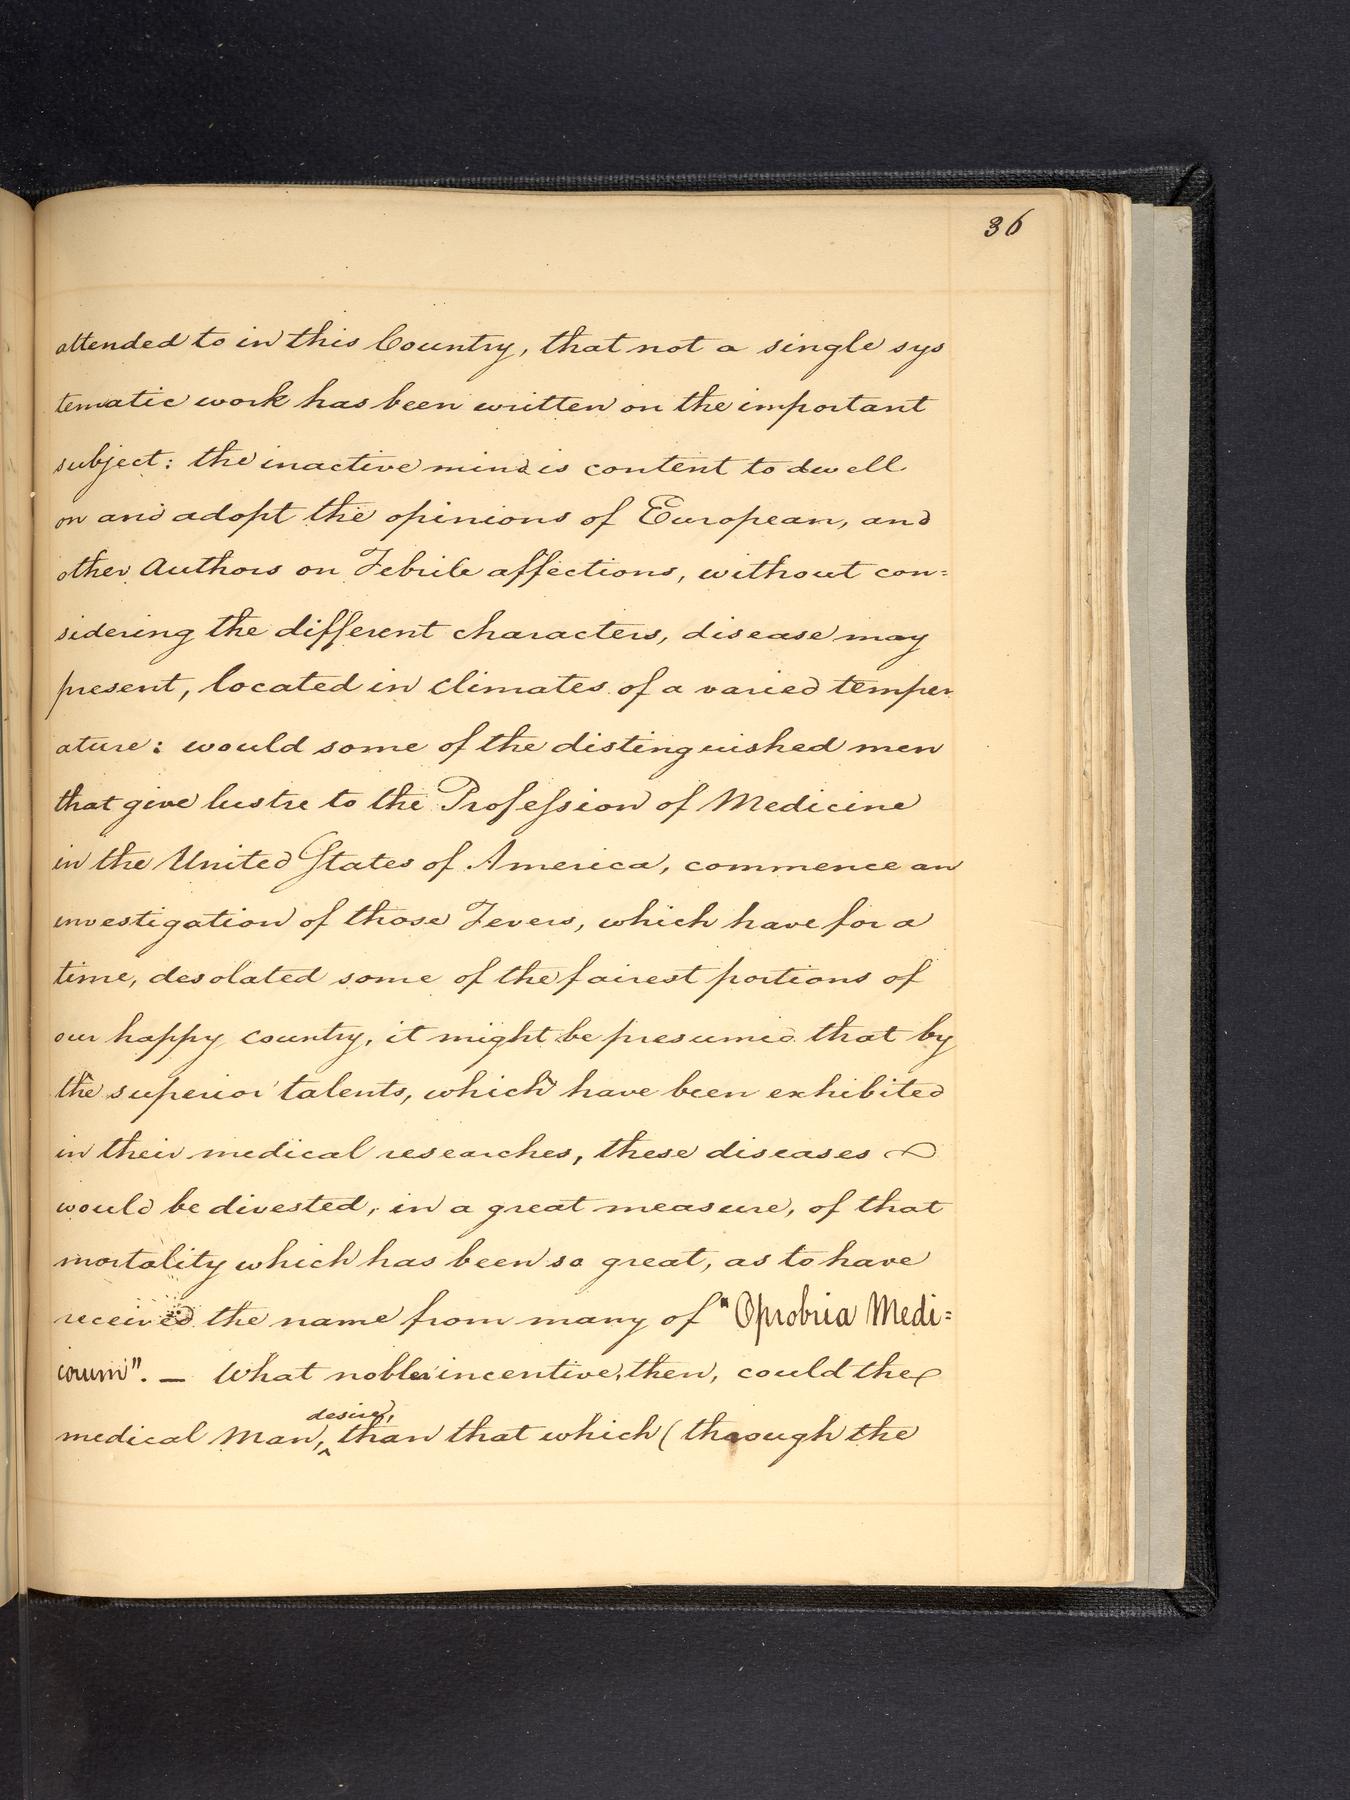 36
attended to in this Country, that not a single sys
tematic work has been written on the important
subject: the inactive mind is content to dwell
on and adopt the opinions of European, and
other Authors on Febrile affections, without con=
sidering the different characters, disease may
present, located in climates of a varied temper
ature: would some of the distinguished men
that give lustre to the Profession of Medicine
in the United States of America, commence an
investigation of those Fevers, which have for a
time, desolated some of the fairest portions of
our happy country, it might be presumed that by
the superior talents, which have been exhibited
in their medical researches, these diseases
would be divested, in a great measure, of that
mortality which has been so great, as to have
received the name from many of "Oprobria Medi=
corum". — What nobler incentive, then, could the
desire,
medical Man, ‸ than that which (through the